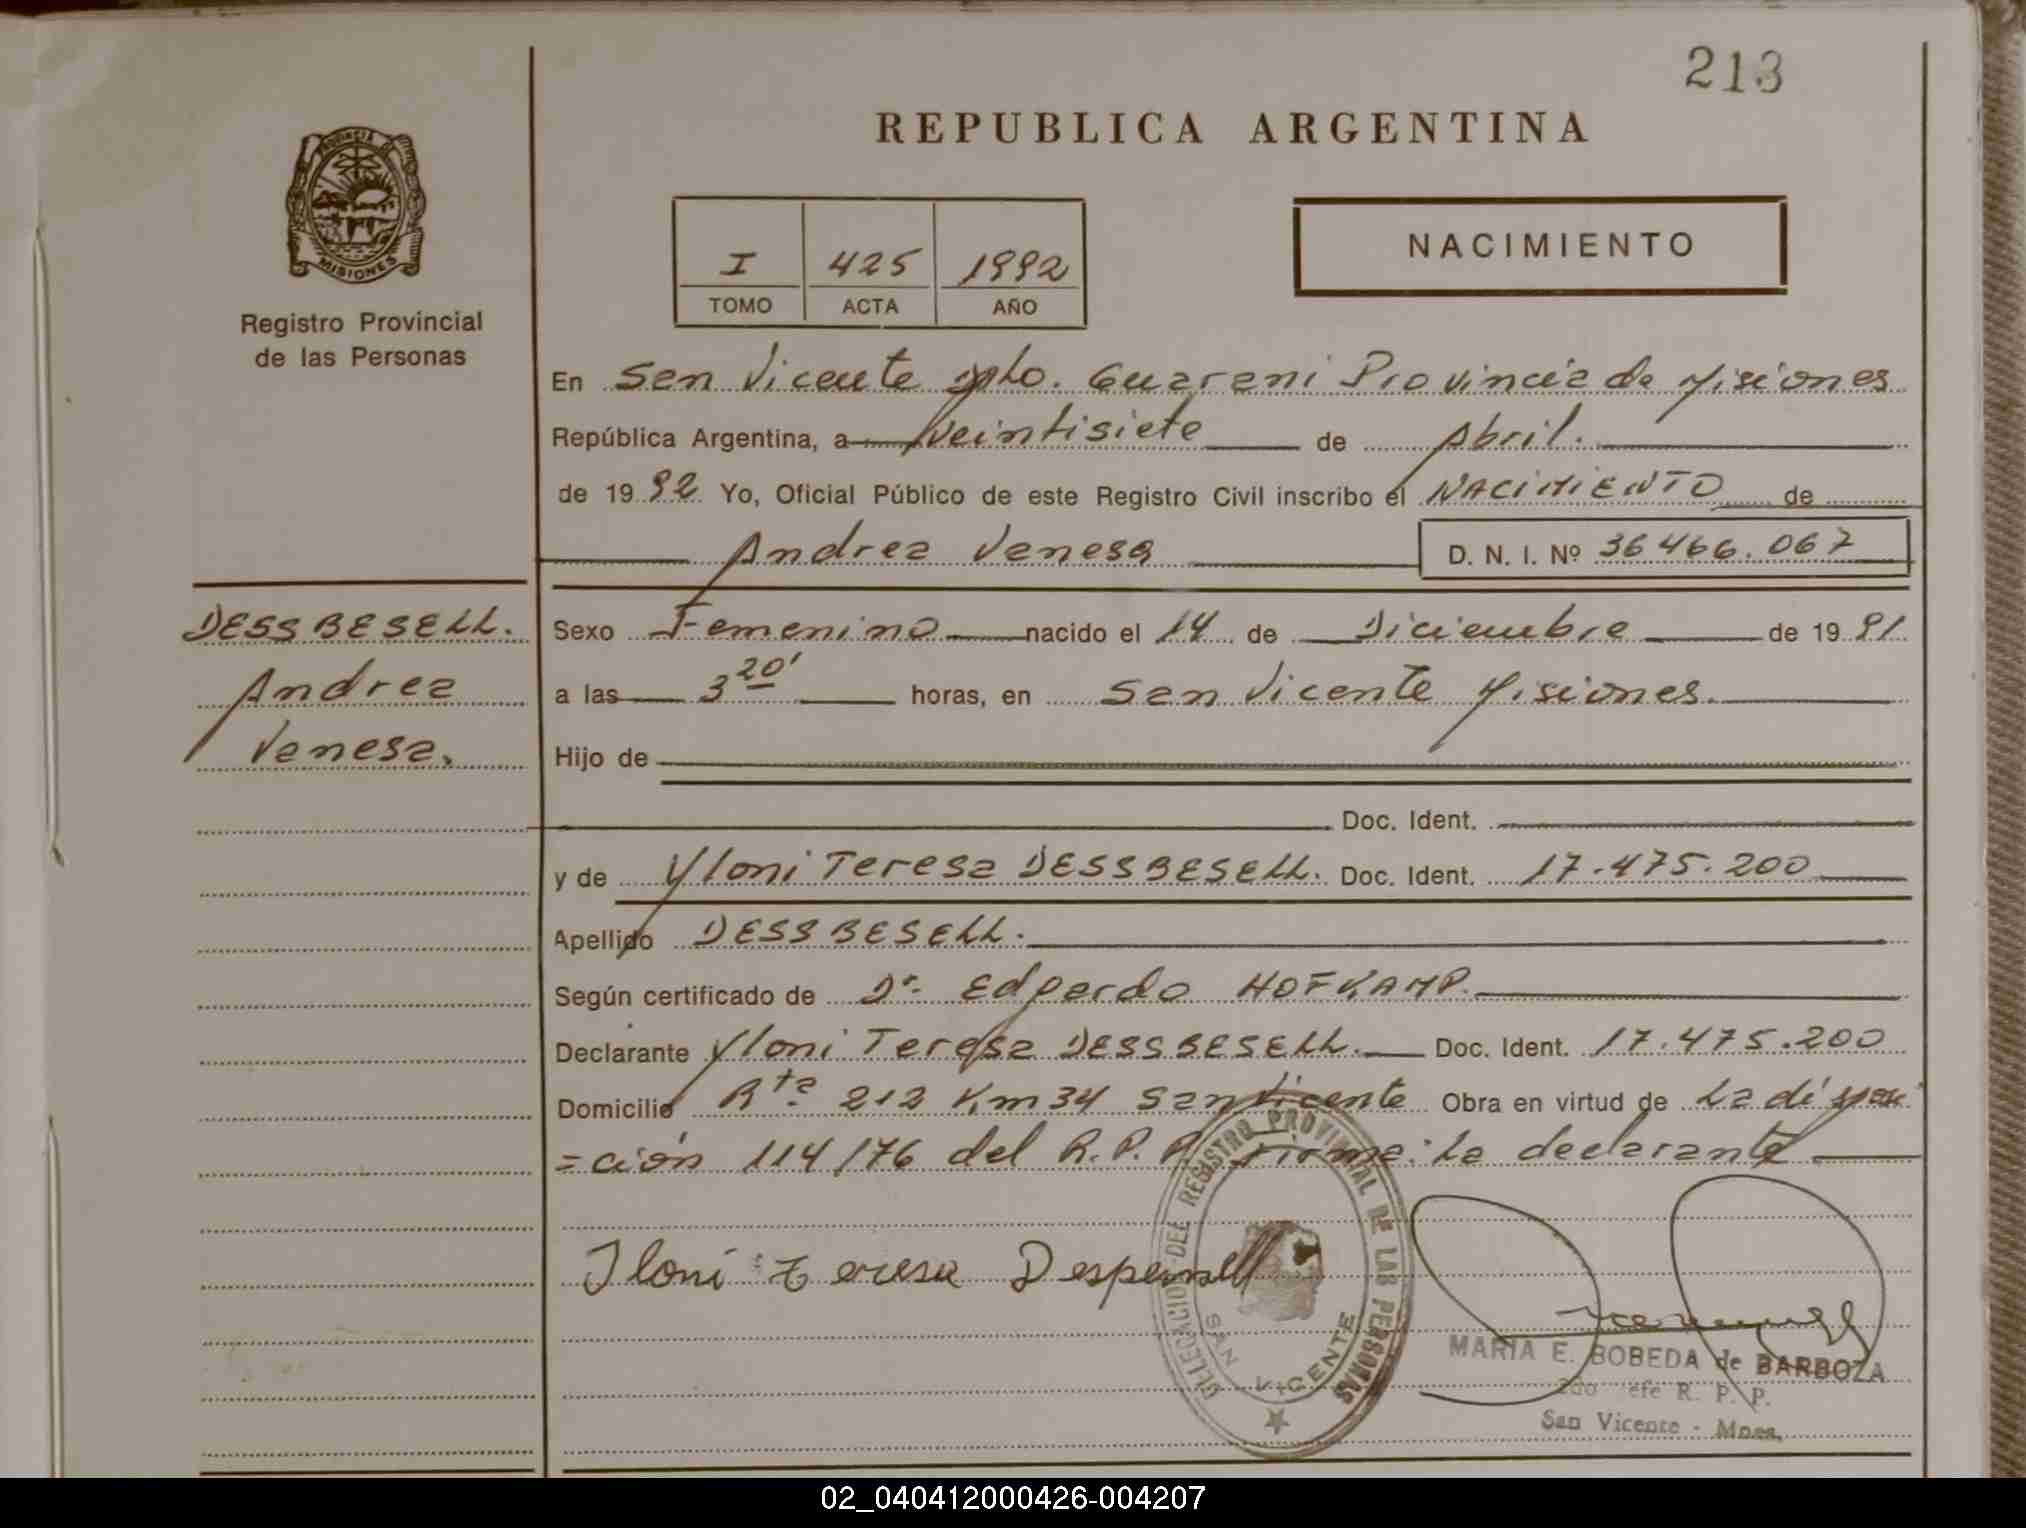 213
REPUBLICA ARGENTINA
PROVINCIA DE
MISIONES
Registro Provincial
de las Personas
I 425 1992
TOMO ACTA AÑO
NACIMIENTO
En San Vicente Dpto. Guarani Provincia de Misiones
República Argentina, a veintisiete de Abril.
de 1992 Yo, Oficial Público de este Registro Civil inscribo el NACIMIENTO de
Andrea Vanesa D. N. I. Nº 36466.067
DESSBESELL.
Andrea
Vanesa.
Sexo Femenino nacido el 14 de Diciembre de 1991
a las 3 20' horas, en San Vicente Misiones.
Hijo de
Doc. Ident.
y de Yloni Teresa DESSBESELL. Doc. Ident. 17.475.200
Apellido DESSBESELL.
Según certificado de Dr. Edgardo HOFKAMP.
Declarante Yloni Teresa DESSBESELL. Doc. Ident. 17.475.200
Domicilio Rta 212 Km 34 San Vicente Obra en virtud de La disposi
=ción 114/76 del R.P.P. Firma: La declarante
Iloni Teresa
DELEGACION DEL REGISTRO PROVINCIAL DE LAS PERSONAS
SAN VICENTE
MARIA E. BOBEDA de BARBOZA
2do Jefe R. P. P.
San Vicente - Mnes.
02_040412000426-004207